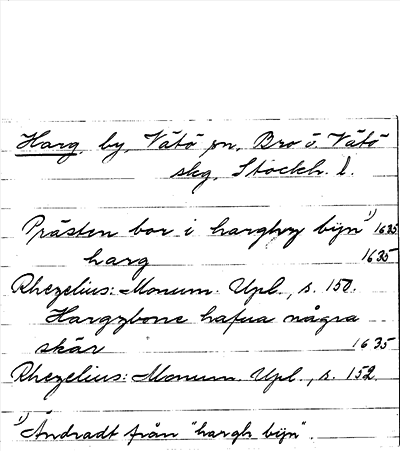 Harg, by, Vätö sn, Bro o. Vätö
skg, Stockh. l.
Prästen bor i harghzy bijn 1) 1635
harg 1635
Rhezelius: Monum. Upl., s. 150.
Hargzbone hafua några
skär 1635
Rhezelius: Monum. Upl., s. 152.
1) Ändradt från "hargh bijn".